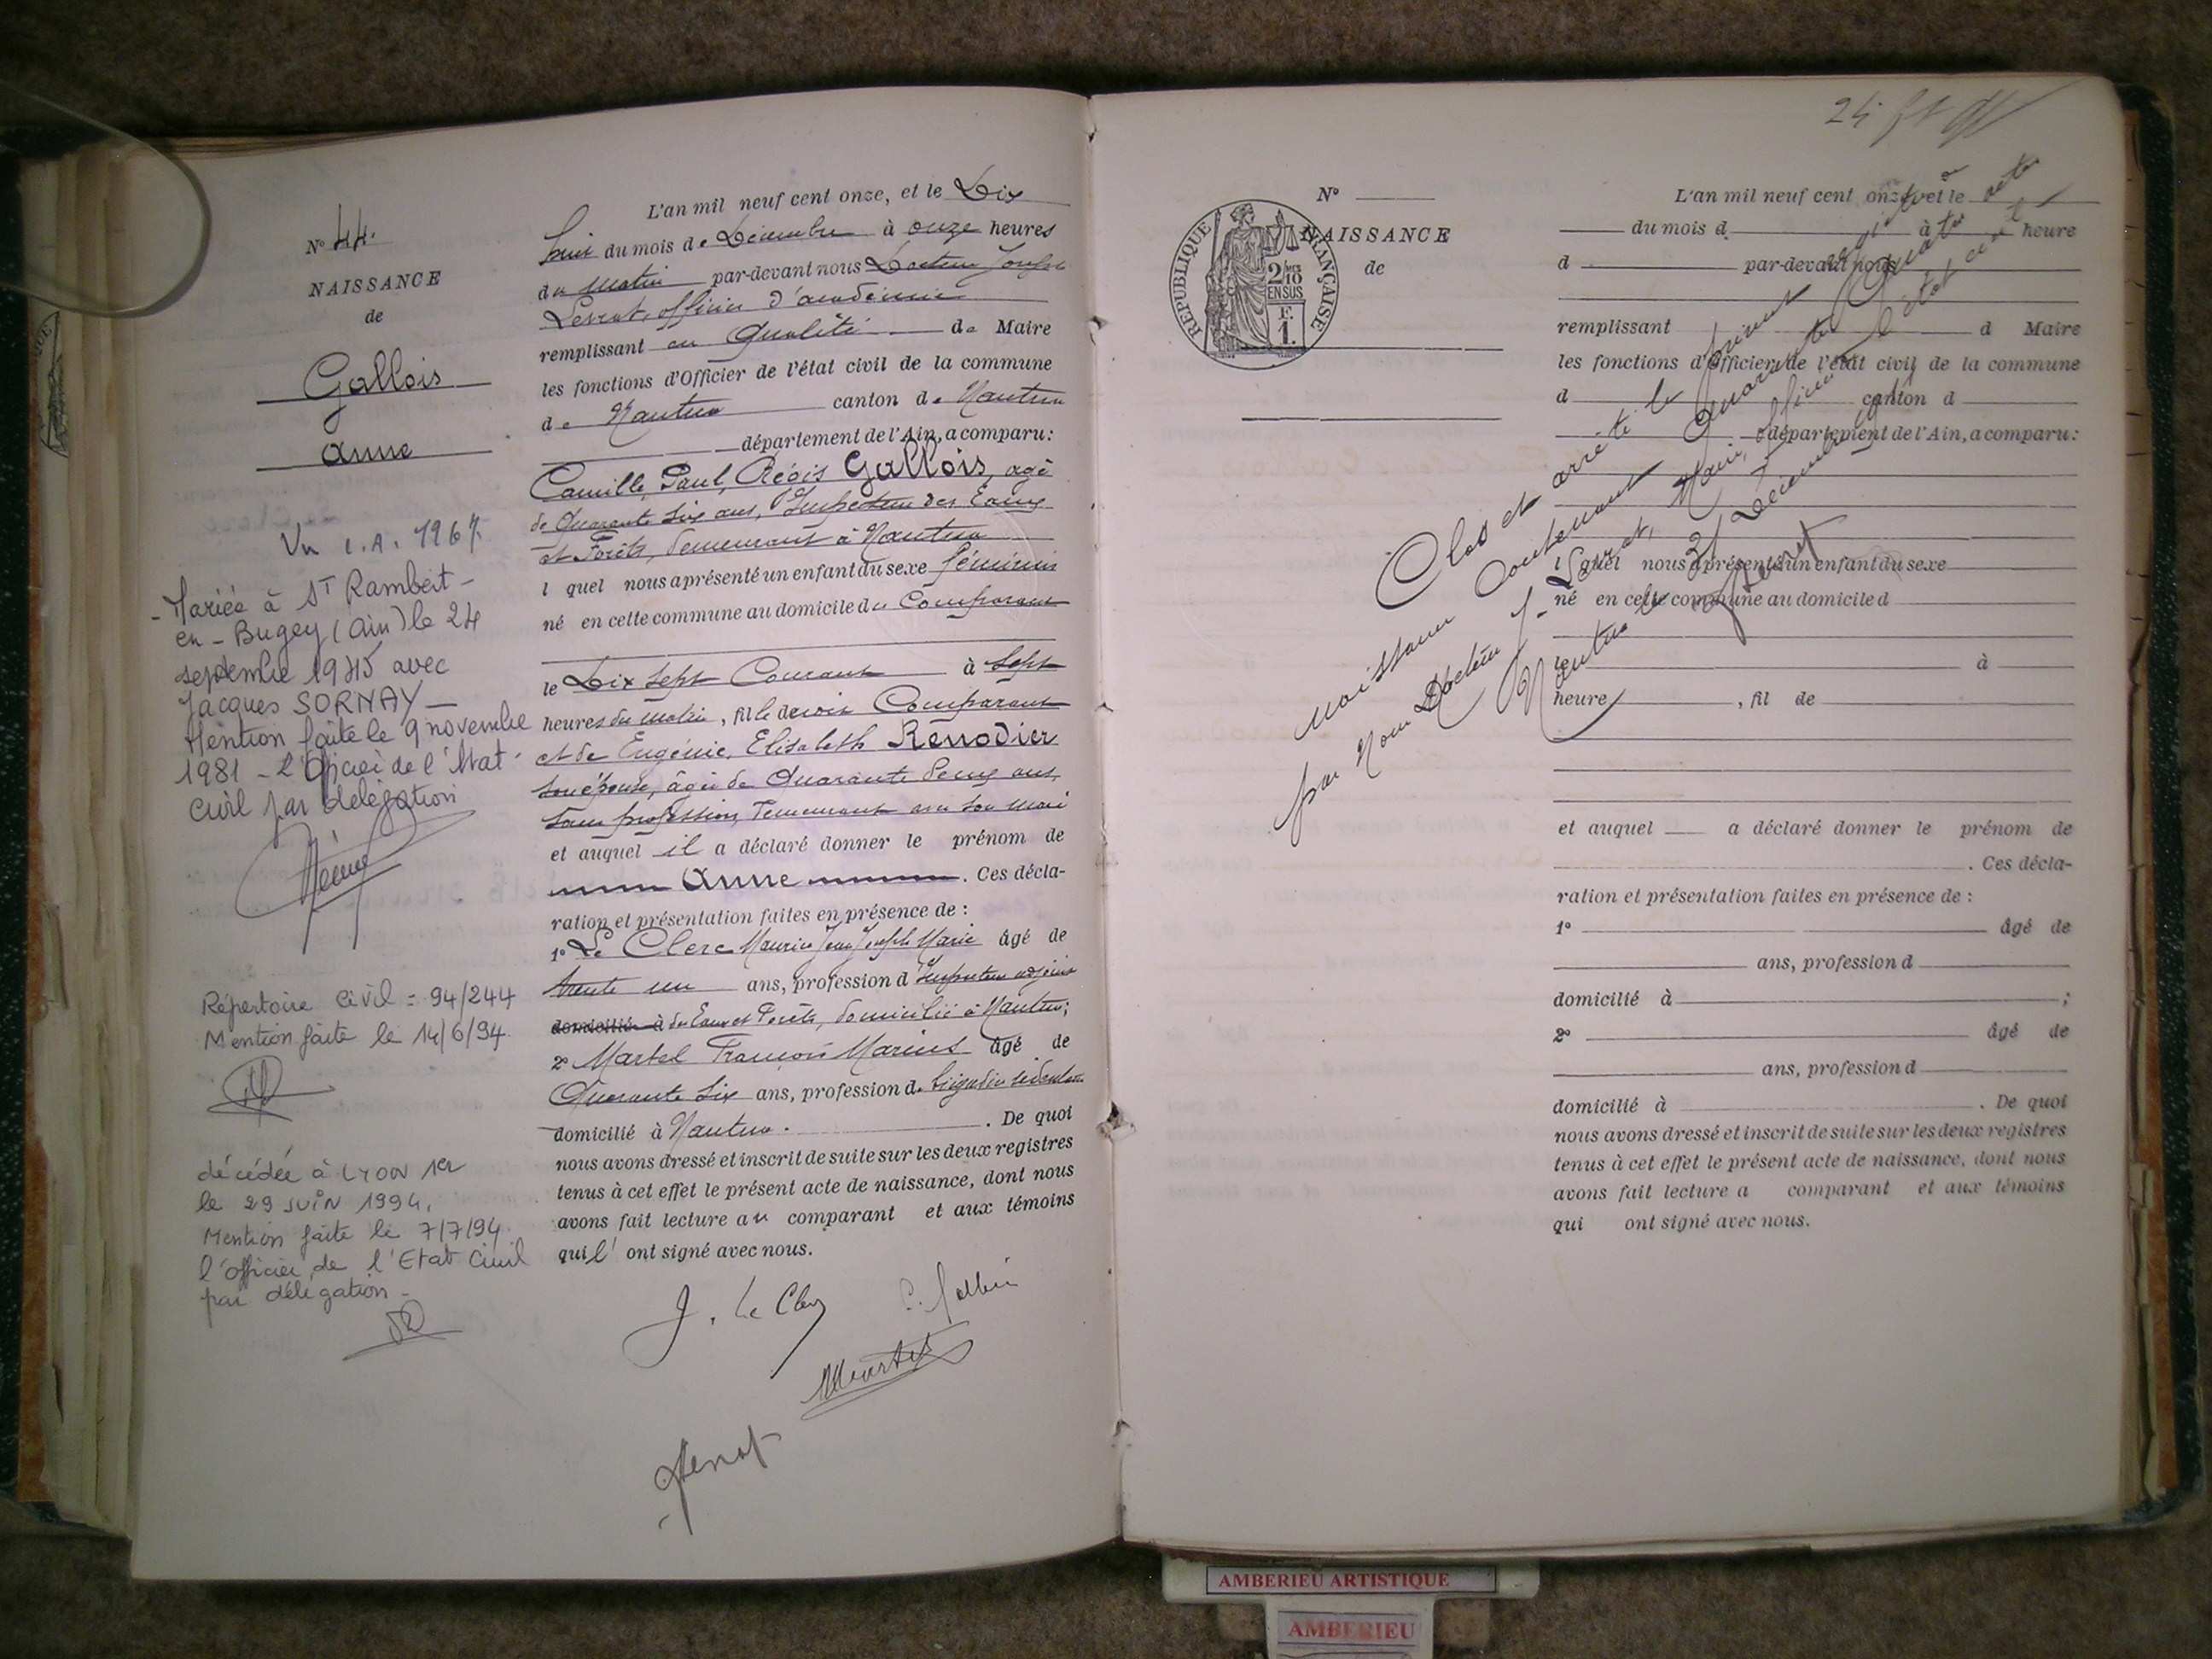 N° 44.
NAISSANCE
de
Gallois
Anne
Vu I.A. 1967
- Mariée à St Rambert-
en-Bugey (Ain) le 24
septembre 1945 avec
Jacques SORNAY -
Mention faite le 9 novembre
1981 - L'Officier de l'État-
civil par délégation
Répertoire Civil = 94/244
Mention faite le 14/6/94
décédée à LYON 1er
le 29 JUIN 1994.
Mention faite le 7/7/94.
l'officier de l'Etat Civil
par délégation -
L'an mil neuf cent onze, et le Dix
huit du mois de Décembre à onze heures
du matin par-devant nous Docteur Joseph
Levrat, officier d'académie
remplissant en qualité de Maire
les fonctions d'Officier de l'état civil de la commune
de Nantua canton de Nantua
département de l'Ain, a comparu:
Camille, Paul, Régis Gallois, agé
de Quarante six ans, Inspecteur des Eaux
et Forêts, demeurant à Nantua
lequel nous a présenté un enfant du sexe féminin
né en cette commune au domicile du Comparant
le Dix sept Courant à Sept
heures du matin, fille de lui Comparant
et de Eugénie, Elisabeth Renodier
son épouse, âgée de Quarante deux ans,
sans profession, demeurant avec son mari
et auquel il a déclaré donner le prénom de
Anne. Ces décla-
ration et présentation faites en présence de :
1° Le Clerc Maurice Jean Joseph Marie âgé de
trente un ans, profession d'Inspecteur adjoint
domicilié à des Eaux et Forêts, domicilié à Nantua;
2° Martel François Marius âgé de
Quarante Six ans, profession de brigadier sédentaire
domicilié à Nantua. De quoi
nous avons dressé et inscrit de suite sur les deux registres
tenus à cet effet le présent acte de naissance, dont nous
avons fait lecture au comparant et aux témoins
qui l' ont signé avec nous.
J. Le Clerc
Martel
Levrat
24
N°
NAISSANCE
de
RÉPUBLIQUE FRANÇAISE
2/10
EN SUS
F.
1.
L'an mil neuf cent onze, et le
du mois d à heure
d par-devant nous
remplissant d Maire
les fonctions d'Officier de l'état civil de la commune
d canton d
département de l'Ain, a comparu:
l quel nous a présenté un enfant du sexe
né en cette commune au domicile d
le à
heure , fil de
et auquel a déclaré donner le prénom de
. Ces décla-
ration et présentation faites en présence de :
1° âgé de
ans, profession d
domicilié à ;
2° âgé de
ans, profession d
domicilié à . De quoi
nous avons dressé et inscrit de suite sur les deux registres
tenus à cet effet le présent acte de naissance, dont nous
avons fait lecture a comparant et aux témoins
qui ont signé avec nous.
Clos et arrêté le présent registre
Contenant Quarante Quatre actes
naissance
par Nous Docteur J. Levrat, Maire, officier de l'état civil
Nantua le 31 Décembre
Levrat
AMBERIEU ARTISTIQUE
AMBERIEU